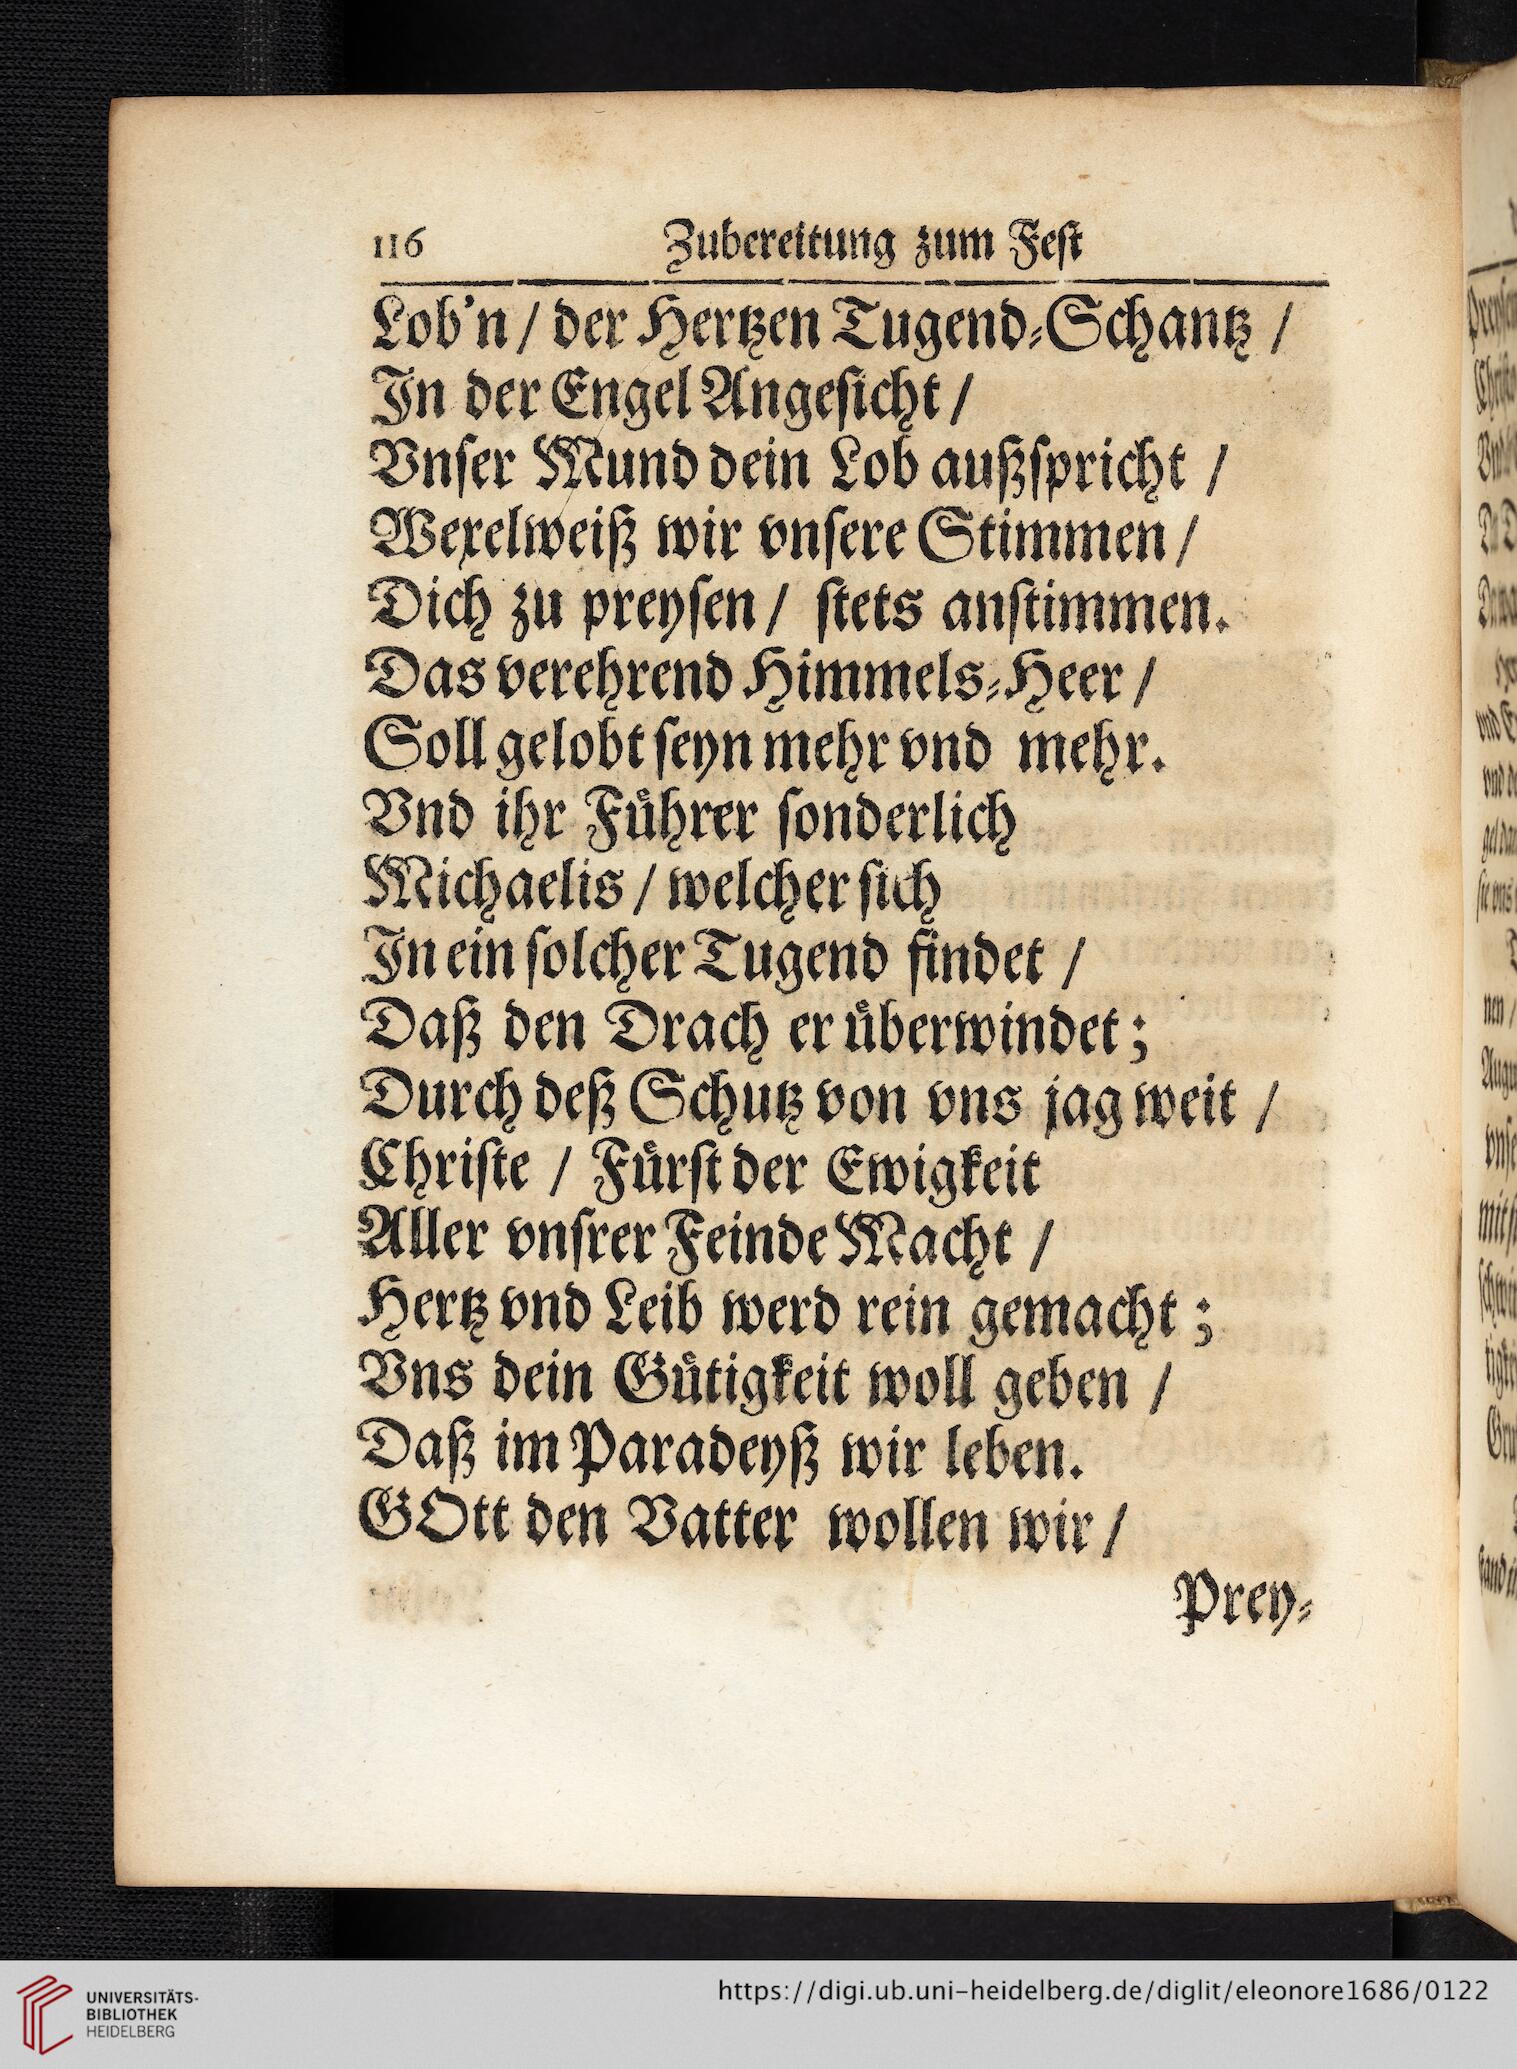 116 Zubereitung zum Fest
Lob'n / der Hertzen Tugend-Schantz /
In der Engel Angesicht /
Vnser Mund dein Lob außspricht /
Wexelweiß wir vnsere Stimmen /
Dich zu preysen / stets anstimmen.
Das verehrend Himmels-Heer /
Soll gelobt seyn mehr vnd mehr.
Vnd ihr Fuͤhrer sonderlich
Michaelis / welcher sich
In ein solcher Tugend findet /
Daß den Drach er uͤberwindet ;
Durch deß Schutz von vns jag weit /
Christe / Fuͤrst der Ewigkeit
Aller vnsrer Feinde Macht /
Hertz vnd Leib werd rein gemacht ;
Vns dein Guͤtigkeit woll geben /
Daß im Paradeyß wir leben.
GOtt den Vatter wollen wir /
Prey-
UNIVERSITÄTS-
BIBLIOTHEK
HEIDELBERG
https://digi.ub.uni-heidelberg.de/diglit/eleonore1686/0122